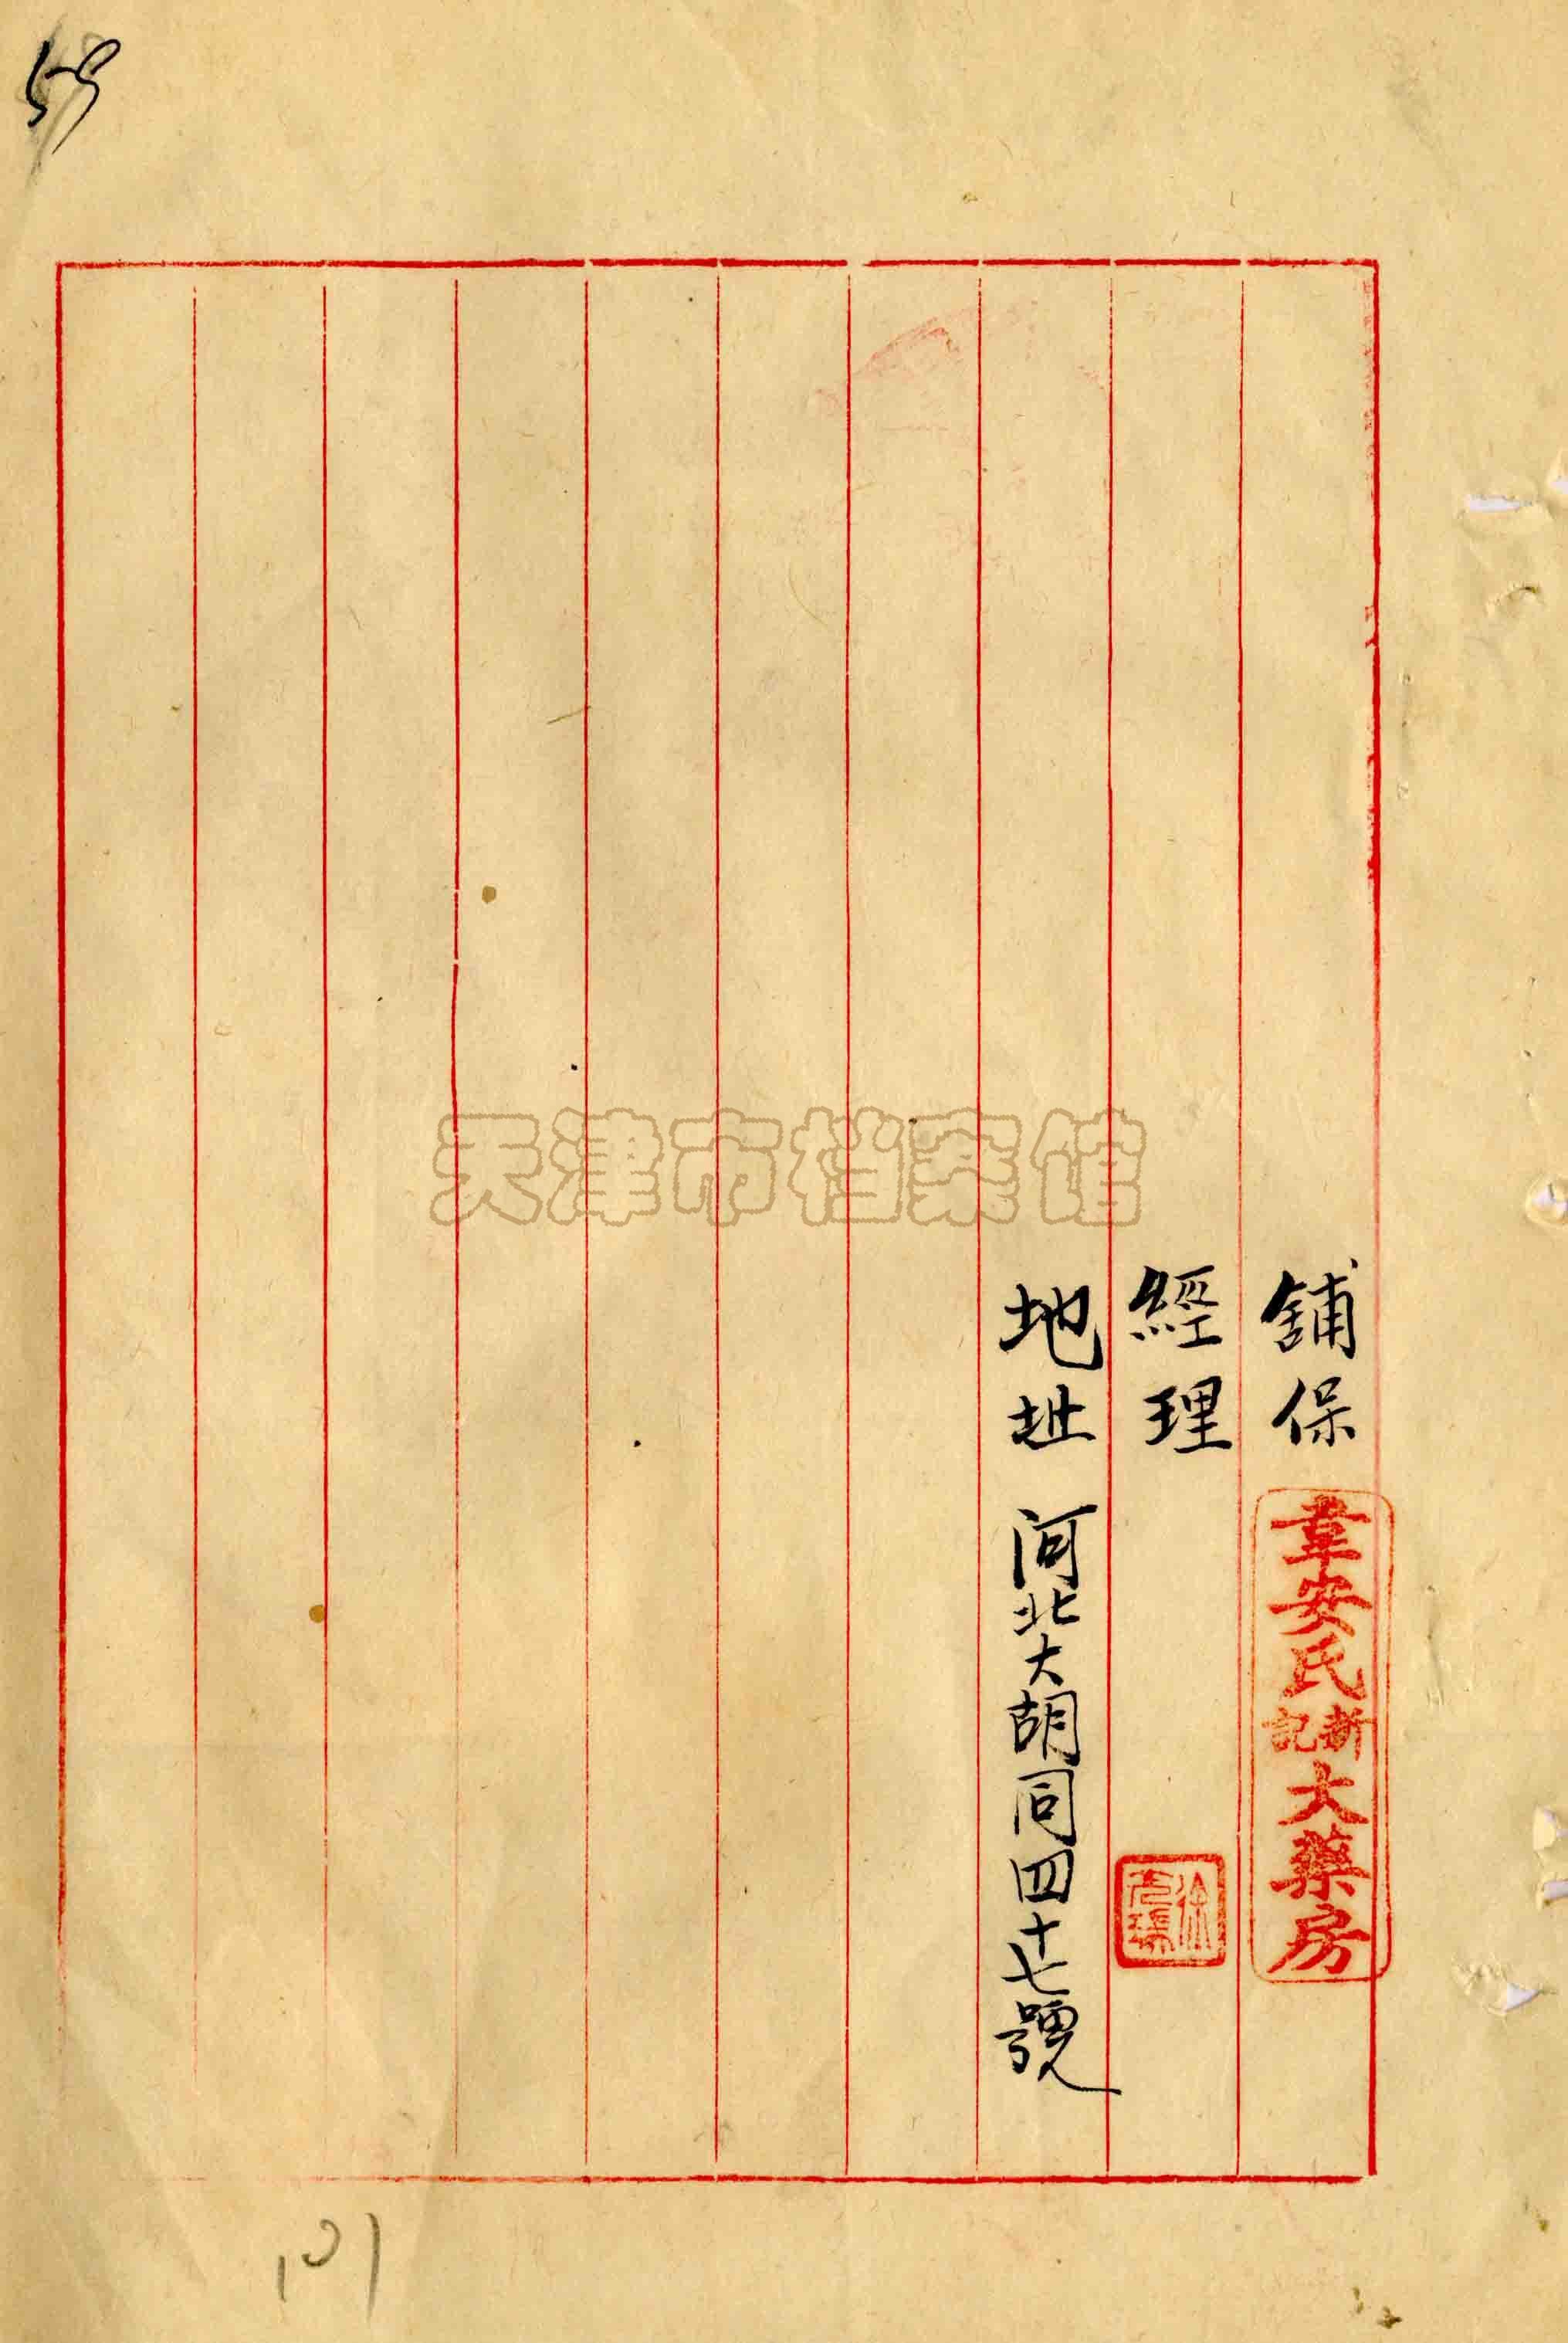 舖保 韋安氏新記大藥房
經理
地址 河北大胡同四十七號
天津市档案馆
101